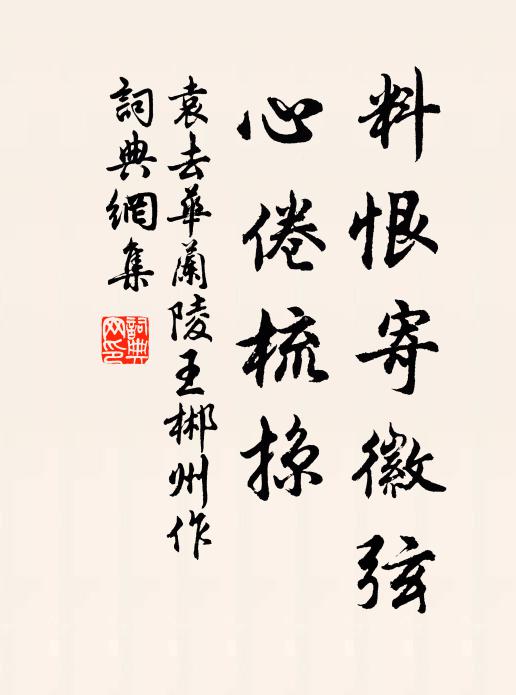 料恨寄徽弦
心倦梳掠
袁去華蘭陵王郴州作
詞典網集
詞典網印